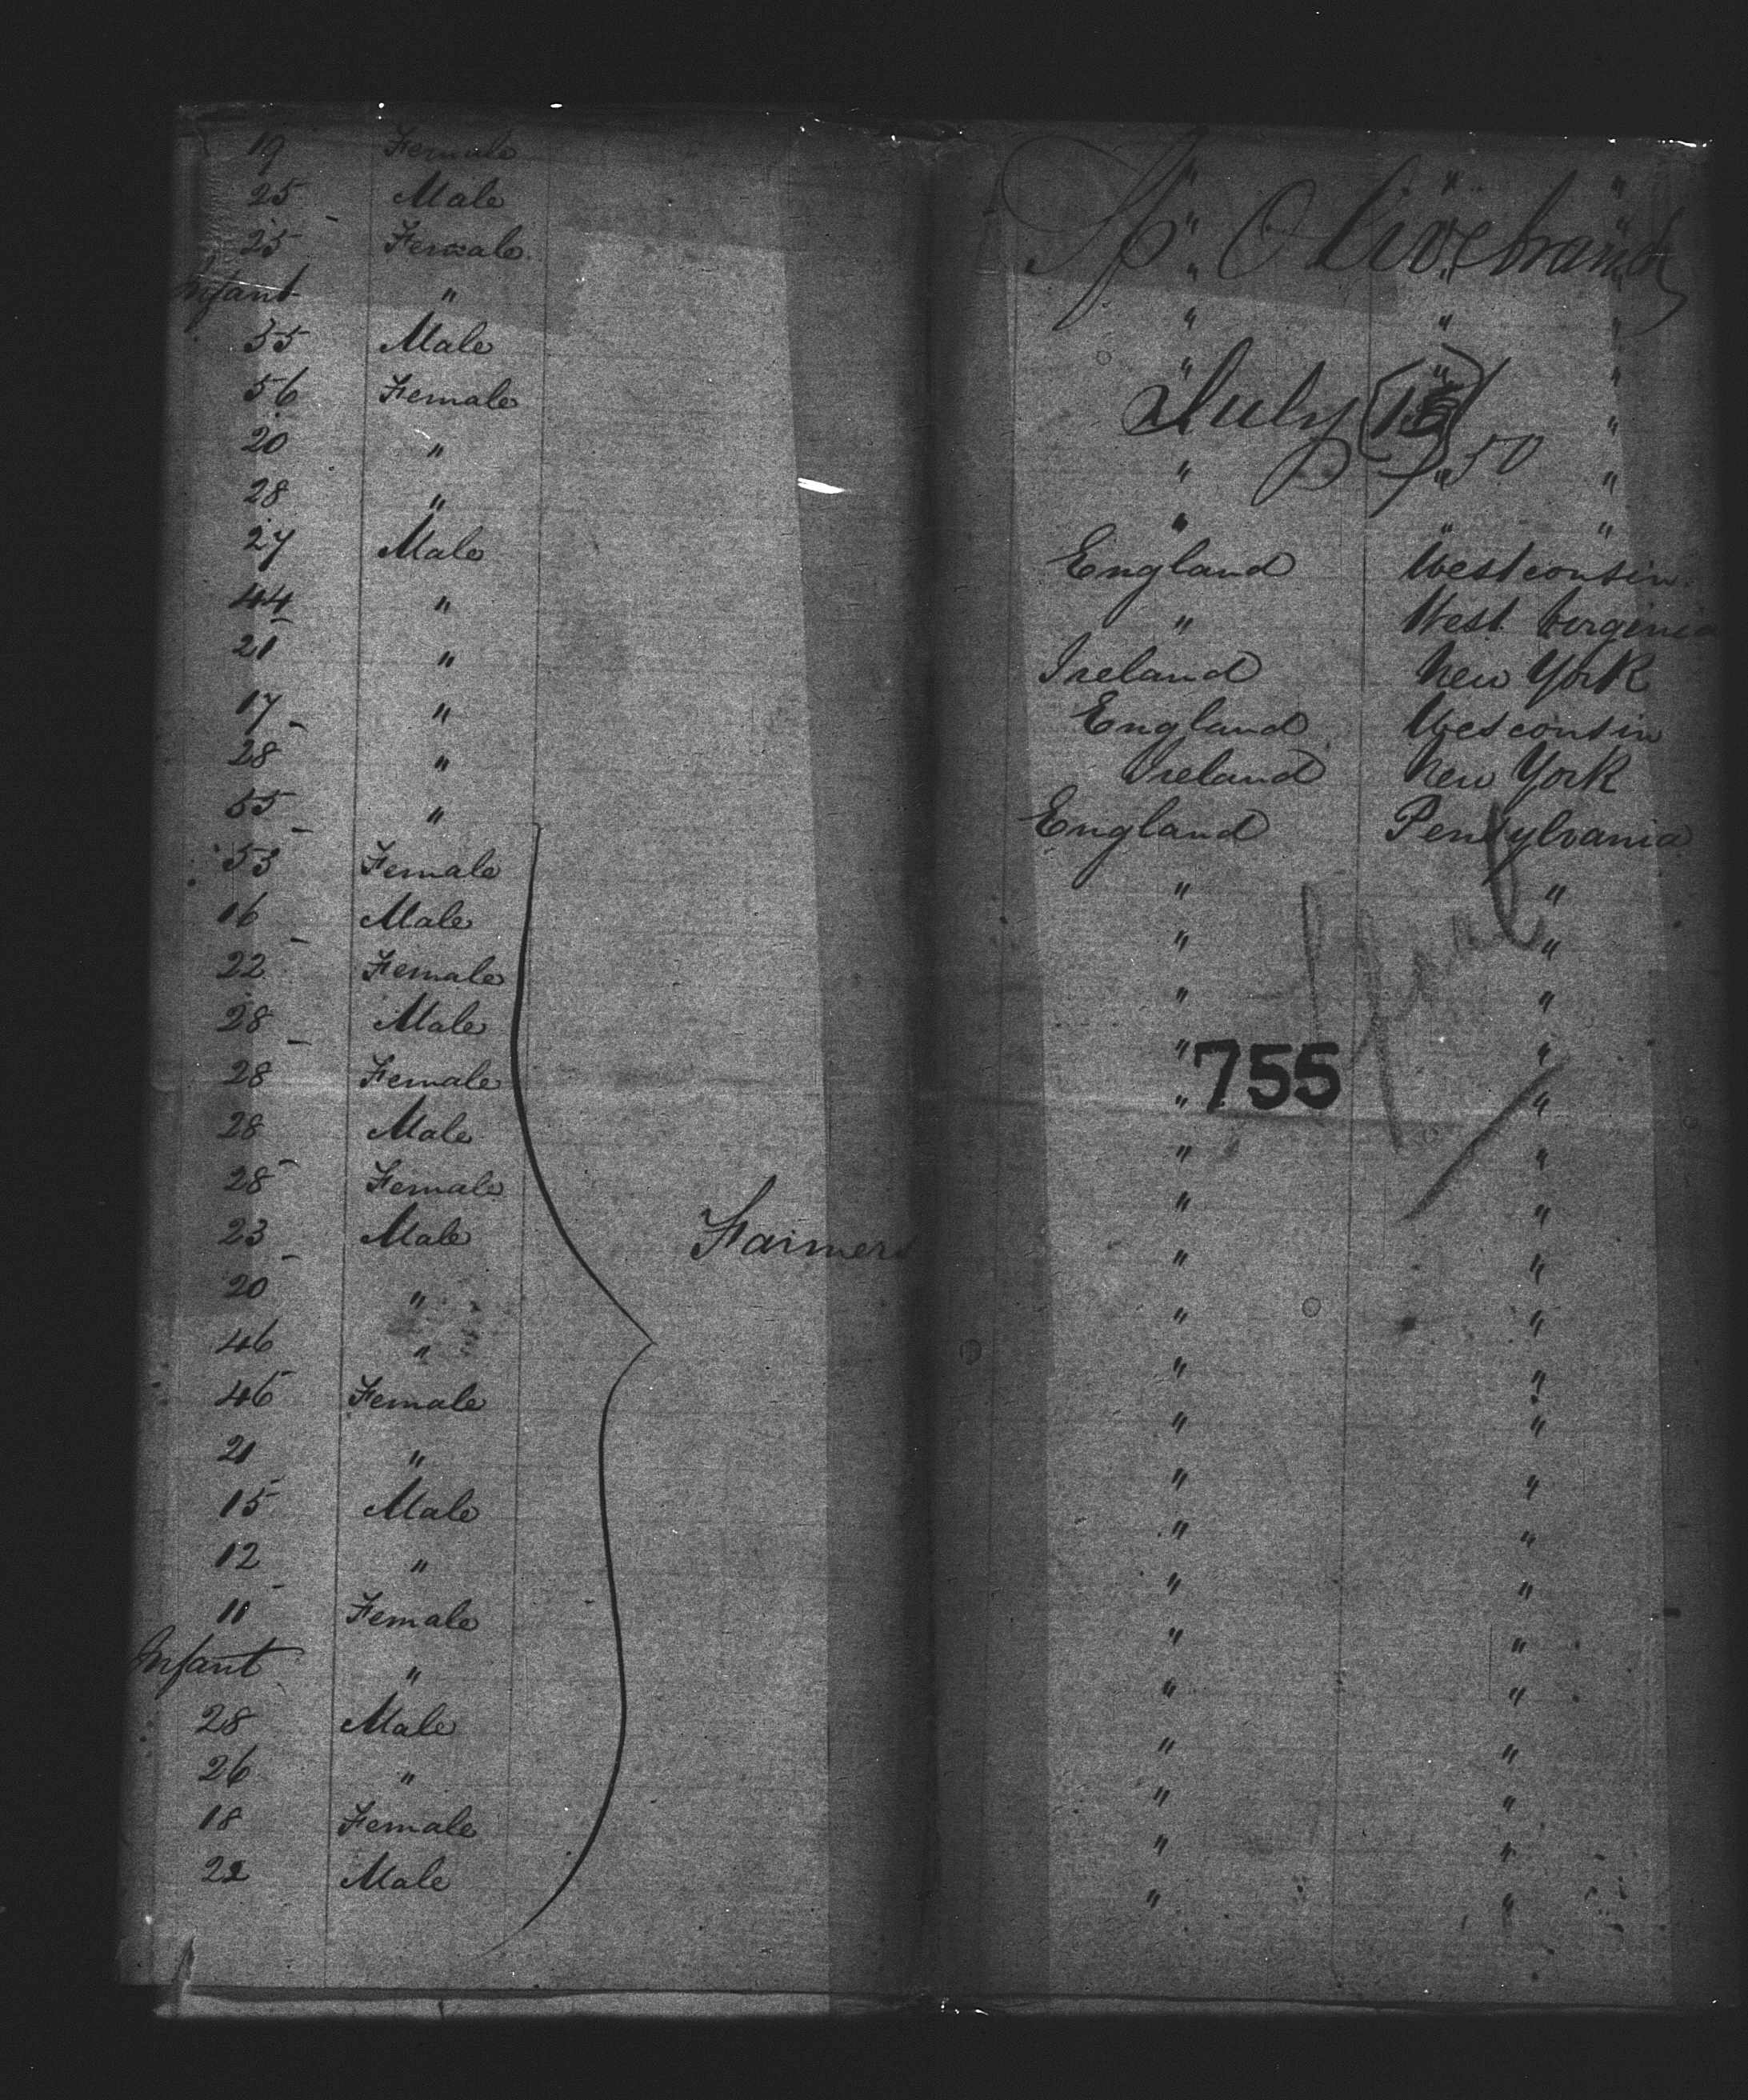 19 Female
25 Male
25 Female
Infant "
35 Male
56 Female
20 "
28 "
27 Male
44 "
21 "
17 "
28 "
55 "
53 Female
16 Male
22 Female
28 Male
28 Female
28 Male
28 Female
23 Male
20 "
46 "
46 Female
21 "
15 Male
12 "
11 Female
Infant "
28 Male
26 "
18 Female
22 Male
Farmers
Sp. Olivebranch
July
50
England Westconsin
" West Virginia
Ireland New York
England Wesconsin
Ireland New York
England Pensylvania
" "
" "
" "
" "
755
" "
" "
" "
" "
" "
" "
" "
" "
" "
" "
" "
" "
" "
" "
" "
" "